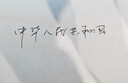 中华人民共和国